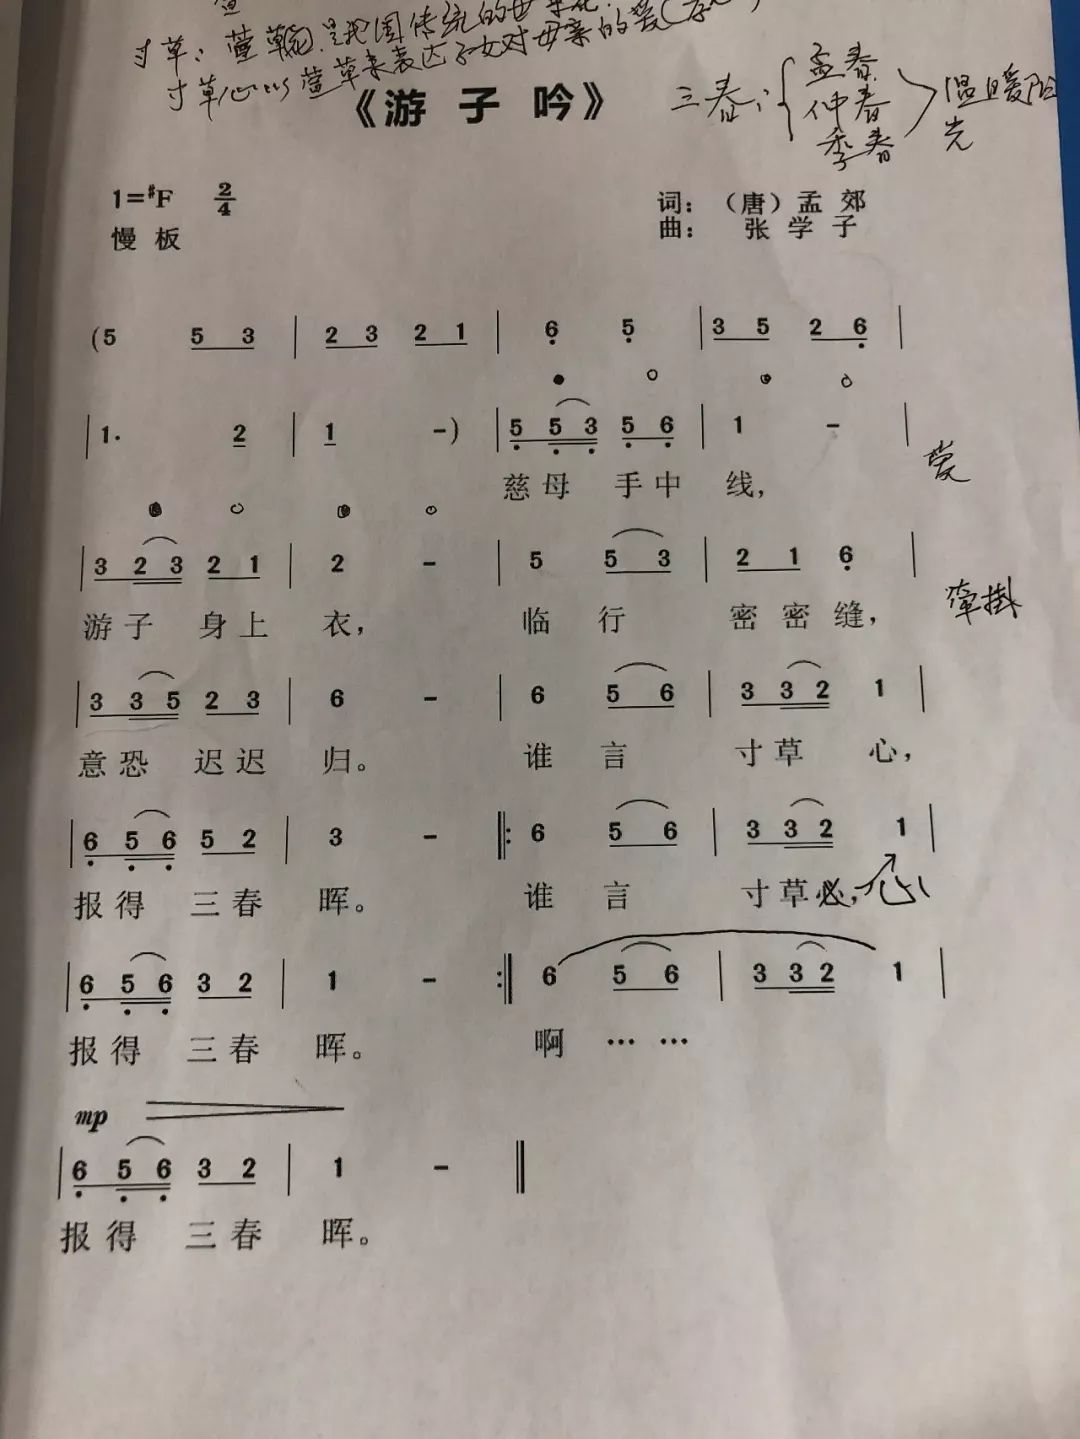 寸草：萱草花.是我国传统的母亲花.
寸草心以萱草来表达子女对母亲的爱(
《游 子 吟》
三春：{ 孟春 仲春 季春 } 温暖阳光
1=#F 2/4
慢 板
词：（唐）孟 郊
曲： 张 学 子
(5 5 3 | 2 3 2 1 | 6 5 | 3 5 2 6 |
| 1. 2 | 1 -) | 5 5 3 5 6 | 1 - |
慈母 手中 线，
爱
| 3 2 3 2 1 | 2 - | 5 5 3 | 2 1 6 |
游子 身上 衣， 临 行 密密缝，
牵掛
| 3 3 5 2 3 | 6 - | 6 5 6 | 3 3 2 1 |
意恐 迟迟 归。 谁 言 寸草 心，
| 6 5 6 5 2 | 3 - ‖: 6 5 6 | 3 3 2 1 |
报得 三春 晖。 谁 言 寸草 心， 心
| 6 5 6 3 2 | 1 - :‖ 6 5 6 | 3 3 2 1 |
报得 三春 晖。 啊 …… 
mp
| 6 5 6 3 2 | 1 - ‖
报得 三春 晖。